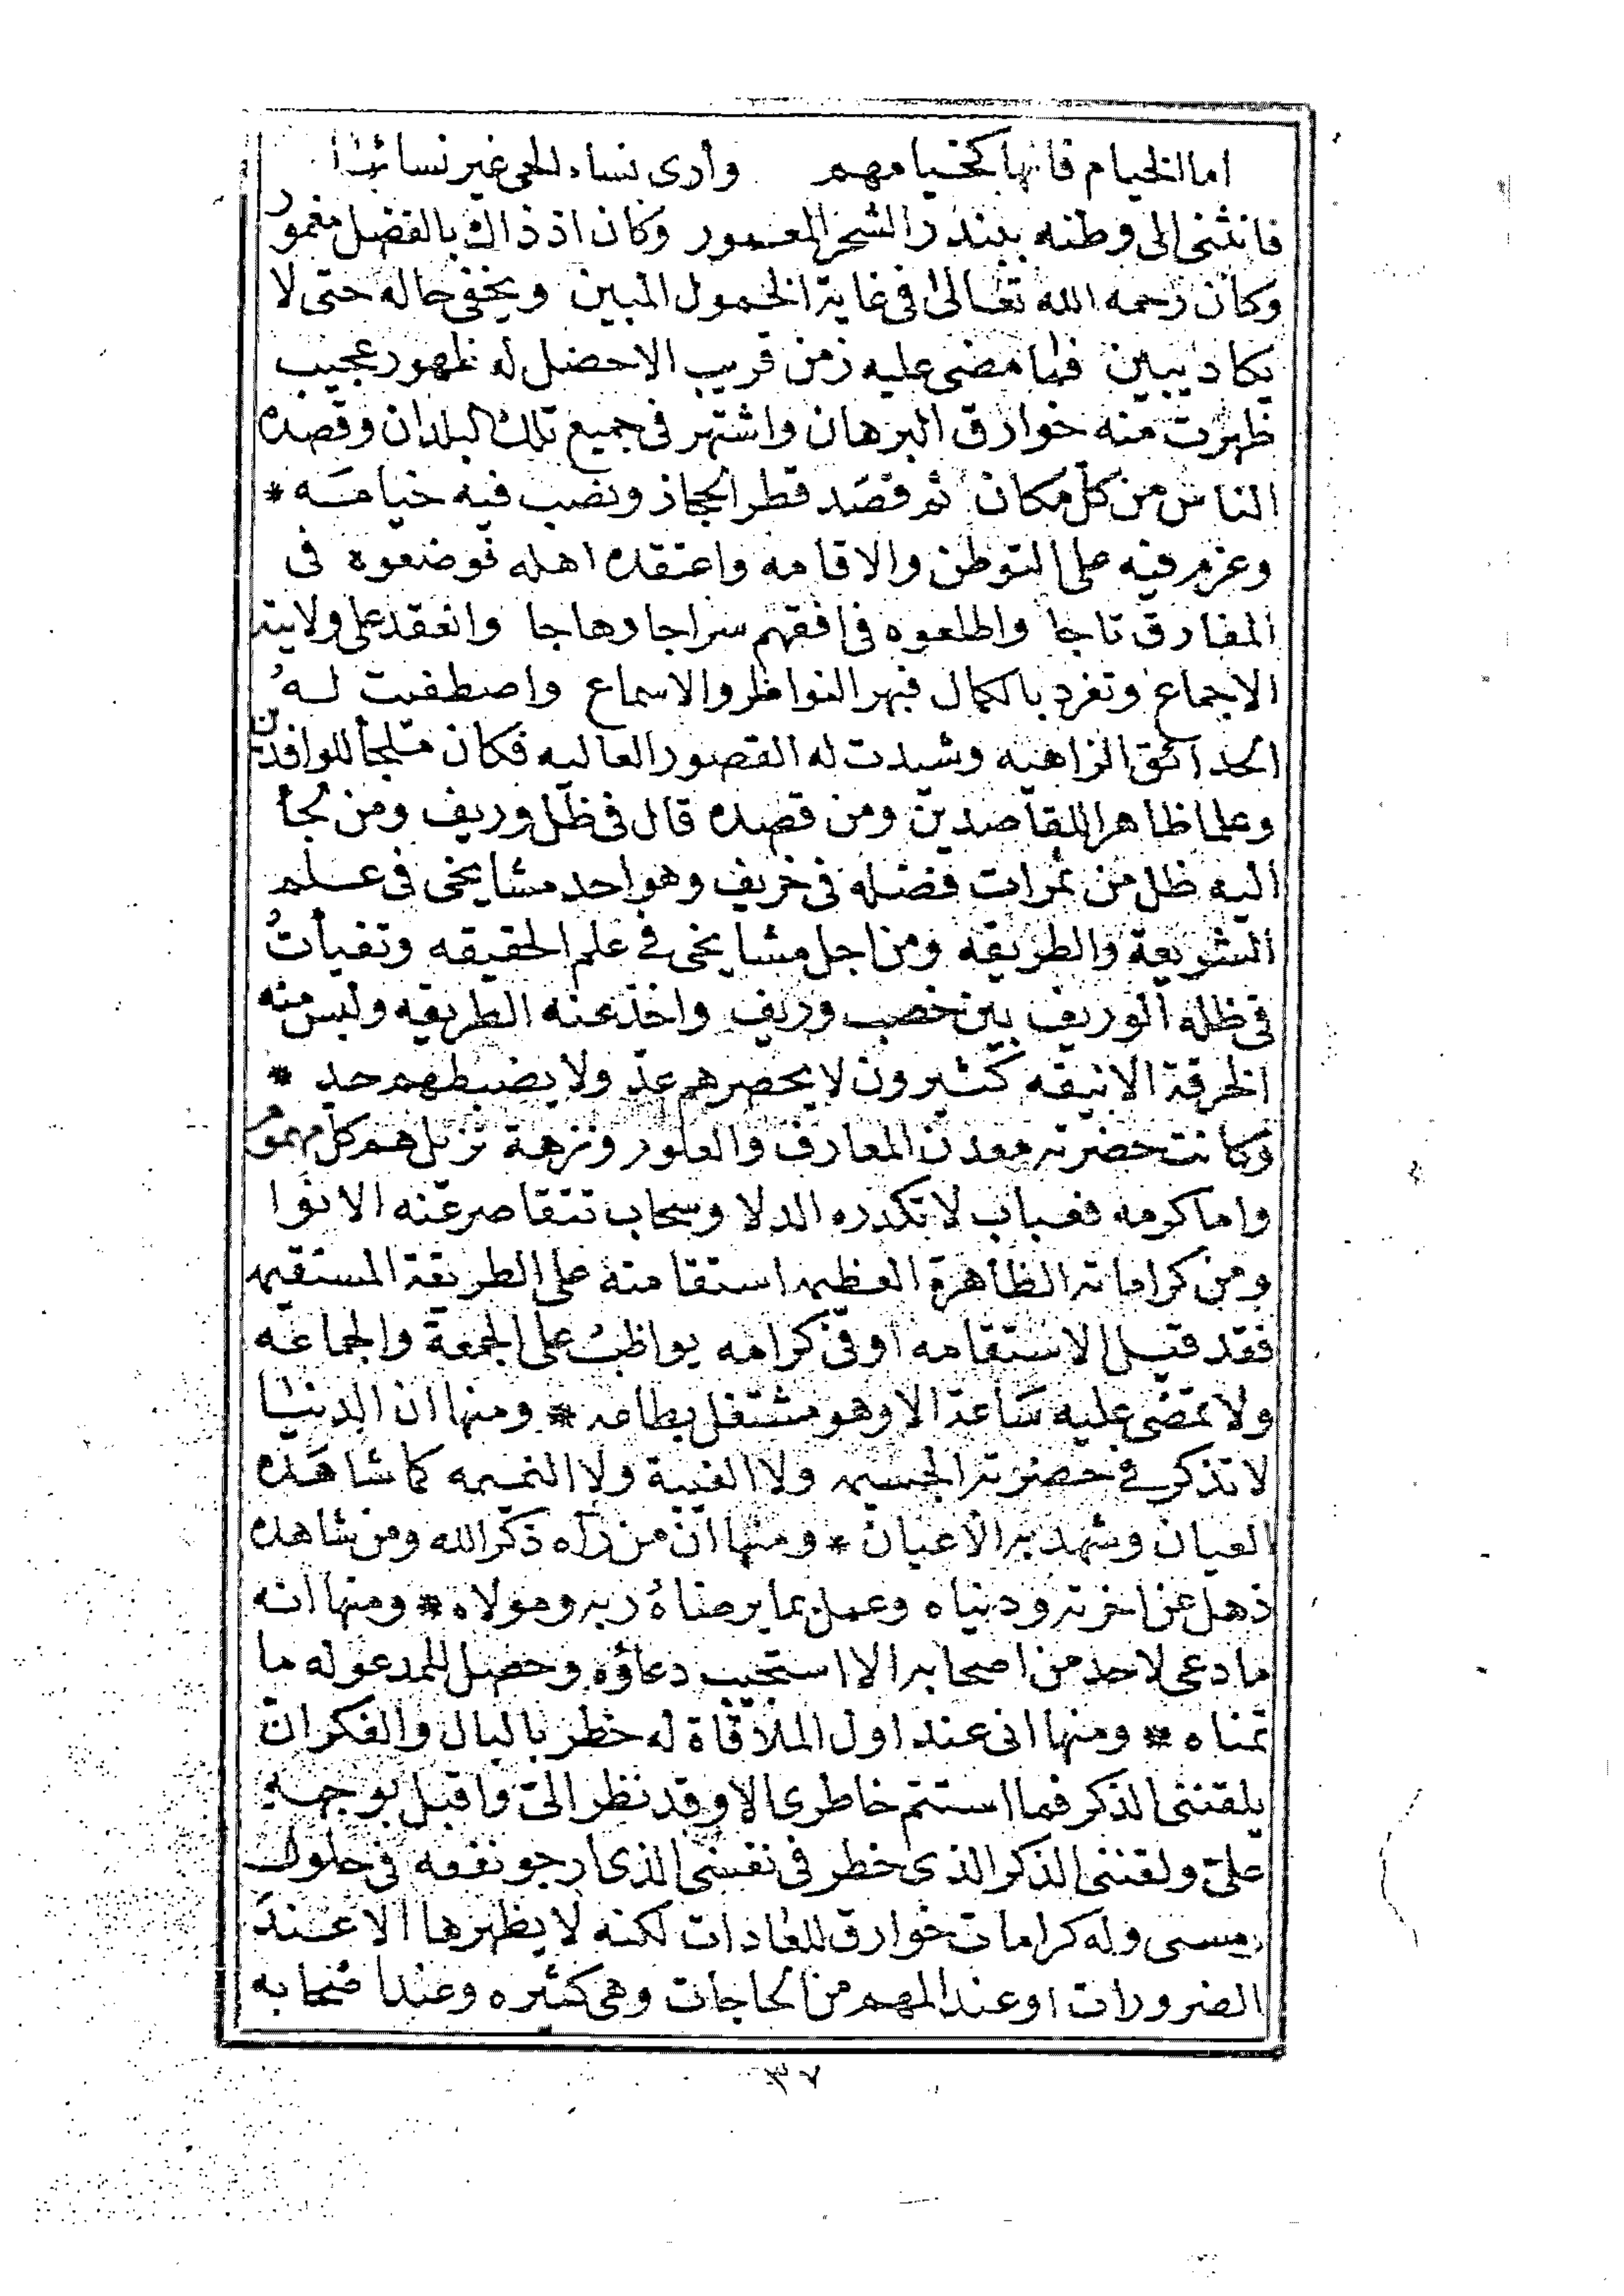 اما الخيام فانها كخيامهم وأرى نساء الحي غير نسائها
فانثنى الى وطنه بندر الشحر المعمور وكان اذ ذاك بالفضل مغمور
وكان رحمه الله تعالى في غاية الخمول المبين ويخفي حاله حتى لا
يكاد يبين فما مضى عليه زمن قريب الا حصل له ظهور عجيب
ظهرت منه خوارق البرهان واشتهر في جميع تلك البلدان وقصده
الناس من كل مكان ثم قصد قطر الحجاز ونصب فيه خيامه *
وعزم فيه على التوطن والاقامه واعتقده اهله فوضعوه في
المفارق تاجا واطلعوه في افقهم سراجا وهاجا وانعقد على ولايته
الاجماع وتفرد بالكمال فبهر النواظر والاسماع واصطفيت له
الحدائق الزاهيه وشيدت له القصور العاليه فكان ملجأ للوافدين
وعلما ظاهرا للقاصدين ومن قصده قال في ظل وريف ومن لجأ
اليه ظل من ثمرات فضله في خريف وهو احد مشايخي في علم
الشريعة والطريقه ومن اجل مشايخي في علم الحقيقه وتفيأت
في ظله الوريف بين خصب وريف واخذ عنه الطريقه ولبس منه
الخرقة الانيقه كثيرون لا يحصرهم عد ولا يضبطهم حد *
وكانت حضرته معدن المعارف والعلوم ونزهة تزيل هم كل مهموم
واما كرمه فعباب لا تكدره الدلا وسحاب تتقاصر عنه الانوا
ومن كراماته الظاهرة العظيمه استقامته على الطريقة المستقيمه
فقد قيل الاستقامه اوفى كرامه يواظب على الجمعة والجماعه
ولا تمضي عليه ساعة الا وهو مشتغل بطاعه * ومنها ان الدنيا
لا تذكر في حضرته الجسيمه ولا الغيبة ولا النميمه كما شاهده
العيان وشهد به الاعيان * ومنها ان من رآه ذكر الله ومن شاهده
ذهل عن اخرته ودنياه وعمل بما يرضاه ربه ومولاه * ومنها انه
ما دعى لاحد من اصحابه الا استجيب دعاؤه وحصل للمدعو له ما
تمناه * ومنها اني عند اول الملاقاة له خطر بالبال والفكر ان
يلقنني الذكر فما استتم خاطري الا وقد نظر الي واقبل بوجهه
علي ولقنني الذكر الذي خطر في نفسي الذي ارجو نفعه في حلول
رمسي وله كرامات خوارق للعادات لكنه لا يظهرها الا عند
الضرورات او عند المهم من الحاجات وهي كثيره وعند اصحابه
٣٧